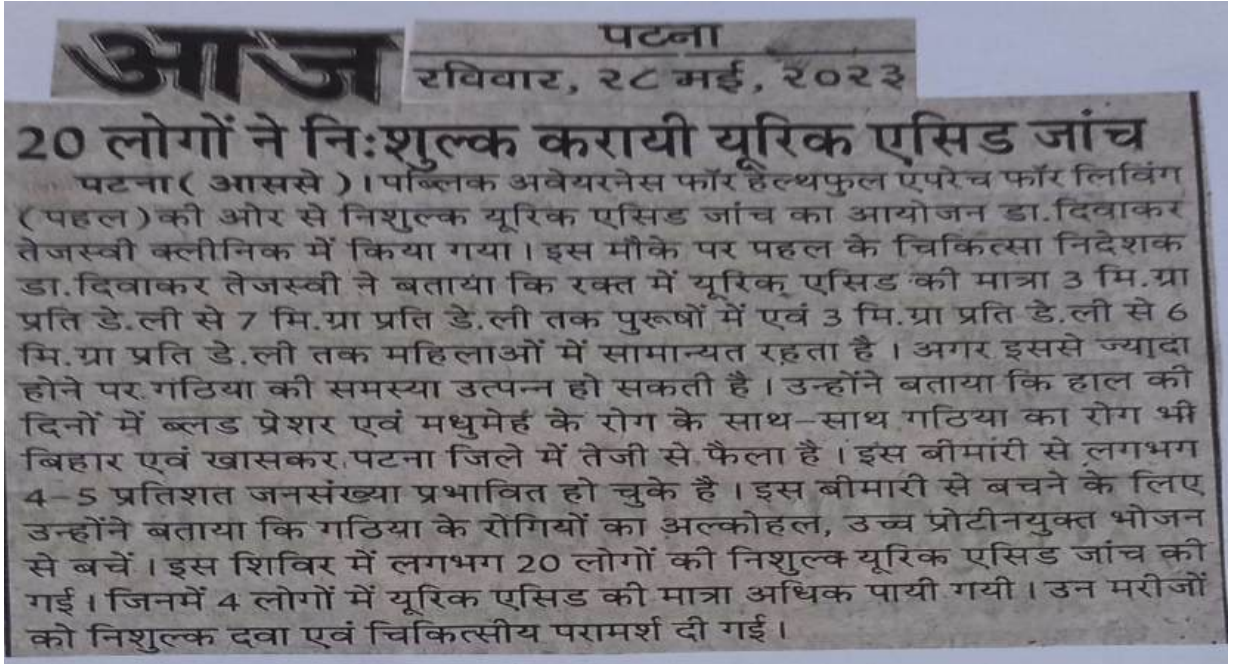 आज
पटना
रविवार, २८ मई, २०२३
20 लोगों ने नि:शुल्क करायी यूरिक एसिड जांच
पटना( आससे )। पब्लिक अवेयरनेस फॉर हेल्थफुल एपरेच फॉर लिविंग
(पहल)की ओर से निशुल्क यूरिक एसिड जांच का आयोजन डा.दिवाकर
तेजस्वी क्लीनिक में किया गया। इस मौके पर पहल के चिकित्सा निदेशक
डा.दिवाकर तेजस्वी ने बताया कि रक्त में यूरिक् एसिड की मात्रा 3 मि.ग्रा
प्रति डे.ली से 7 मि.ग्रा प्रति डे.ली तक पुरूषों में एवं 3 मि.ग्रा प्रति डे.ली से 6
मि.ग्रा प्रति डे.ली तक महिलाओं में सामान्यत रहता है। अगर इससे ज्यादा
होने पर गंठिया की समस्या उत्पन्न हो सकती है। उन्होंने बताया कि हाल की
दिनों में ब्लड प्रेशर एवं मधुमेह के रोग के साथ-साथ गठिया का रोग भी
बिहार एवं खासकर पटना जिले में तेजी से फैला है। इस बीमारी से लगभग
4-5 प्रतिशत जनसंख्या प्रभावित हो चुके है। इस बीमारी से बचने के लिए
उन्होंने बताया कि गठिया के रोगियों का अल्कोहल, उच्च प्रोटीनयुक्त भोजन
से बचें। इस शिविर में लगभग 20 लोगों की निशुल्क यूरिक एसिड जांच की
गई। जिनमें 4 लोगों में यूरिक एसिड की मात्रा अधिक पायी गयी। उन मरीजों
को निशुल्क दवा एवं चिकित्सीय परामर्श दी गई।